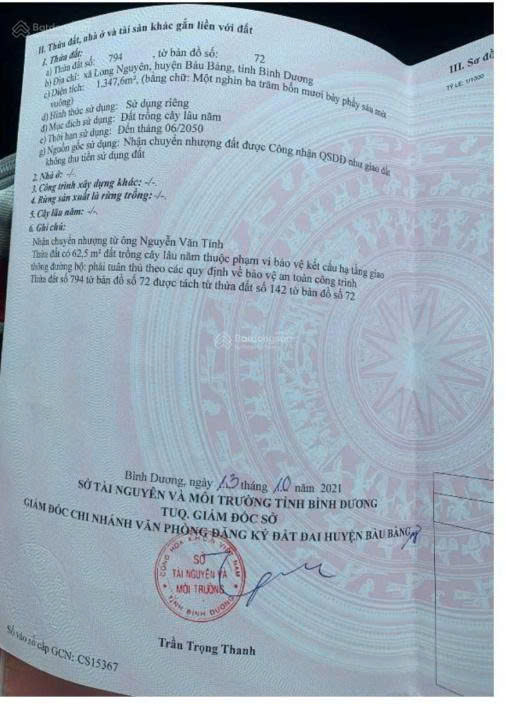 II. Thửa đất, nhà ở và tài sản khác gắn liền với đất
1. Thửa đất:
a) Thửa đất số: 794 , tờ bản đồ số: 72
b) Địa chỉ: xã Long Nguyên, huyện Bàu Bàng, tỉnh Bình Dương
c) Diện tích: 1.347,6m², (bằng chữ: Một nghìn ba trăm bốn mươi bảy phẩy sáu mét
vuông)
d) Hình thức sử dụng: Sử dụng riêng
đ) Mục đích sử dụng: Đất trồng cây lâu năm
e) Thời hạn sử dụng: Đến tháng 06/2050
g) Nguồn gốc sử dụng: Nhận chuyển nhượng đất được Công nhận QSDĐ như giao đất
không thu tiền sử dụng đất
2. Nhà ở: -/-.
3. Công trình xây dựng khác: -/-.
4. Rừng sản xuất là rừng trồng: -/-.
5. Cây lâu năm: -/-.
6. Ghi chú:
Nhận chuyển nhượng từ ông Nguyễn Văn Tính
Thửa đất có 62,5 m² đất trồng cây lâu năm thuộc phạm vi bảo vệ kết cấu hạ tầng giao
thông đường bộ: phải tuân thủ theo các quy định về bảo vệ an toàn công trình
Thửa đất số 794 tờ bản đồ số 72 được tách từ thửa đất số 142 tờ bản đồ số 72
III. Sơ đồ
TỶ LỆ: 1/1000
Batdongsan
Bình Dương, ngày 13 tháng 10 năm 2021
SỞ TÀI NGUYÊN VÀ MÔI TRƯỜNG TỈNH BÌNH DƯƠNG
TUQ. GIÁM ĐỐC SỞ
GIÁM ĐỐC CHI NHÁNH VĂN PHÒNG ĐĂNG KÝ ĐẤT ĐAI HUYỆN BÀU BÀNG
CỘNG HÒA X.H.C.N VIỆT NAM
SỞ
TÀI NGUYÊN VÀ
MÔI TRƯỜNG
TỈNH BÌNH DƯƠNG
Trần Trọng Thanh
Số vào sổ cấp GCN: CS15367